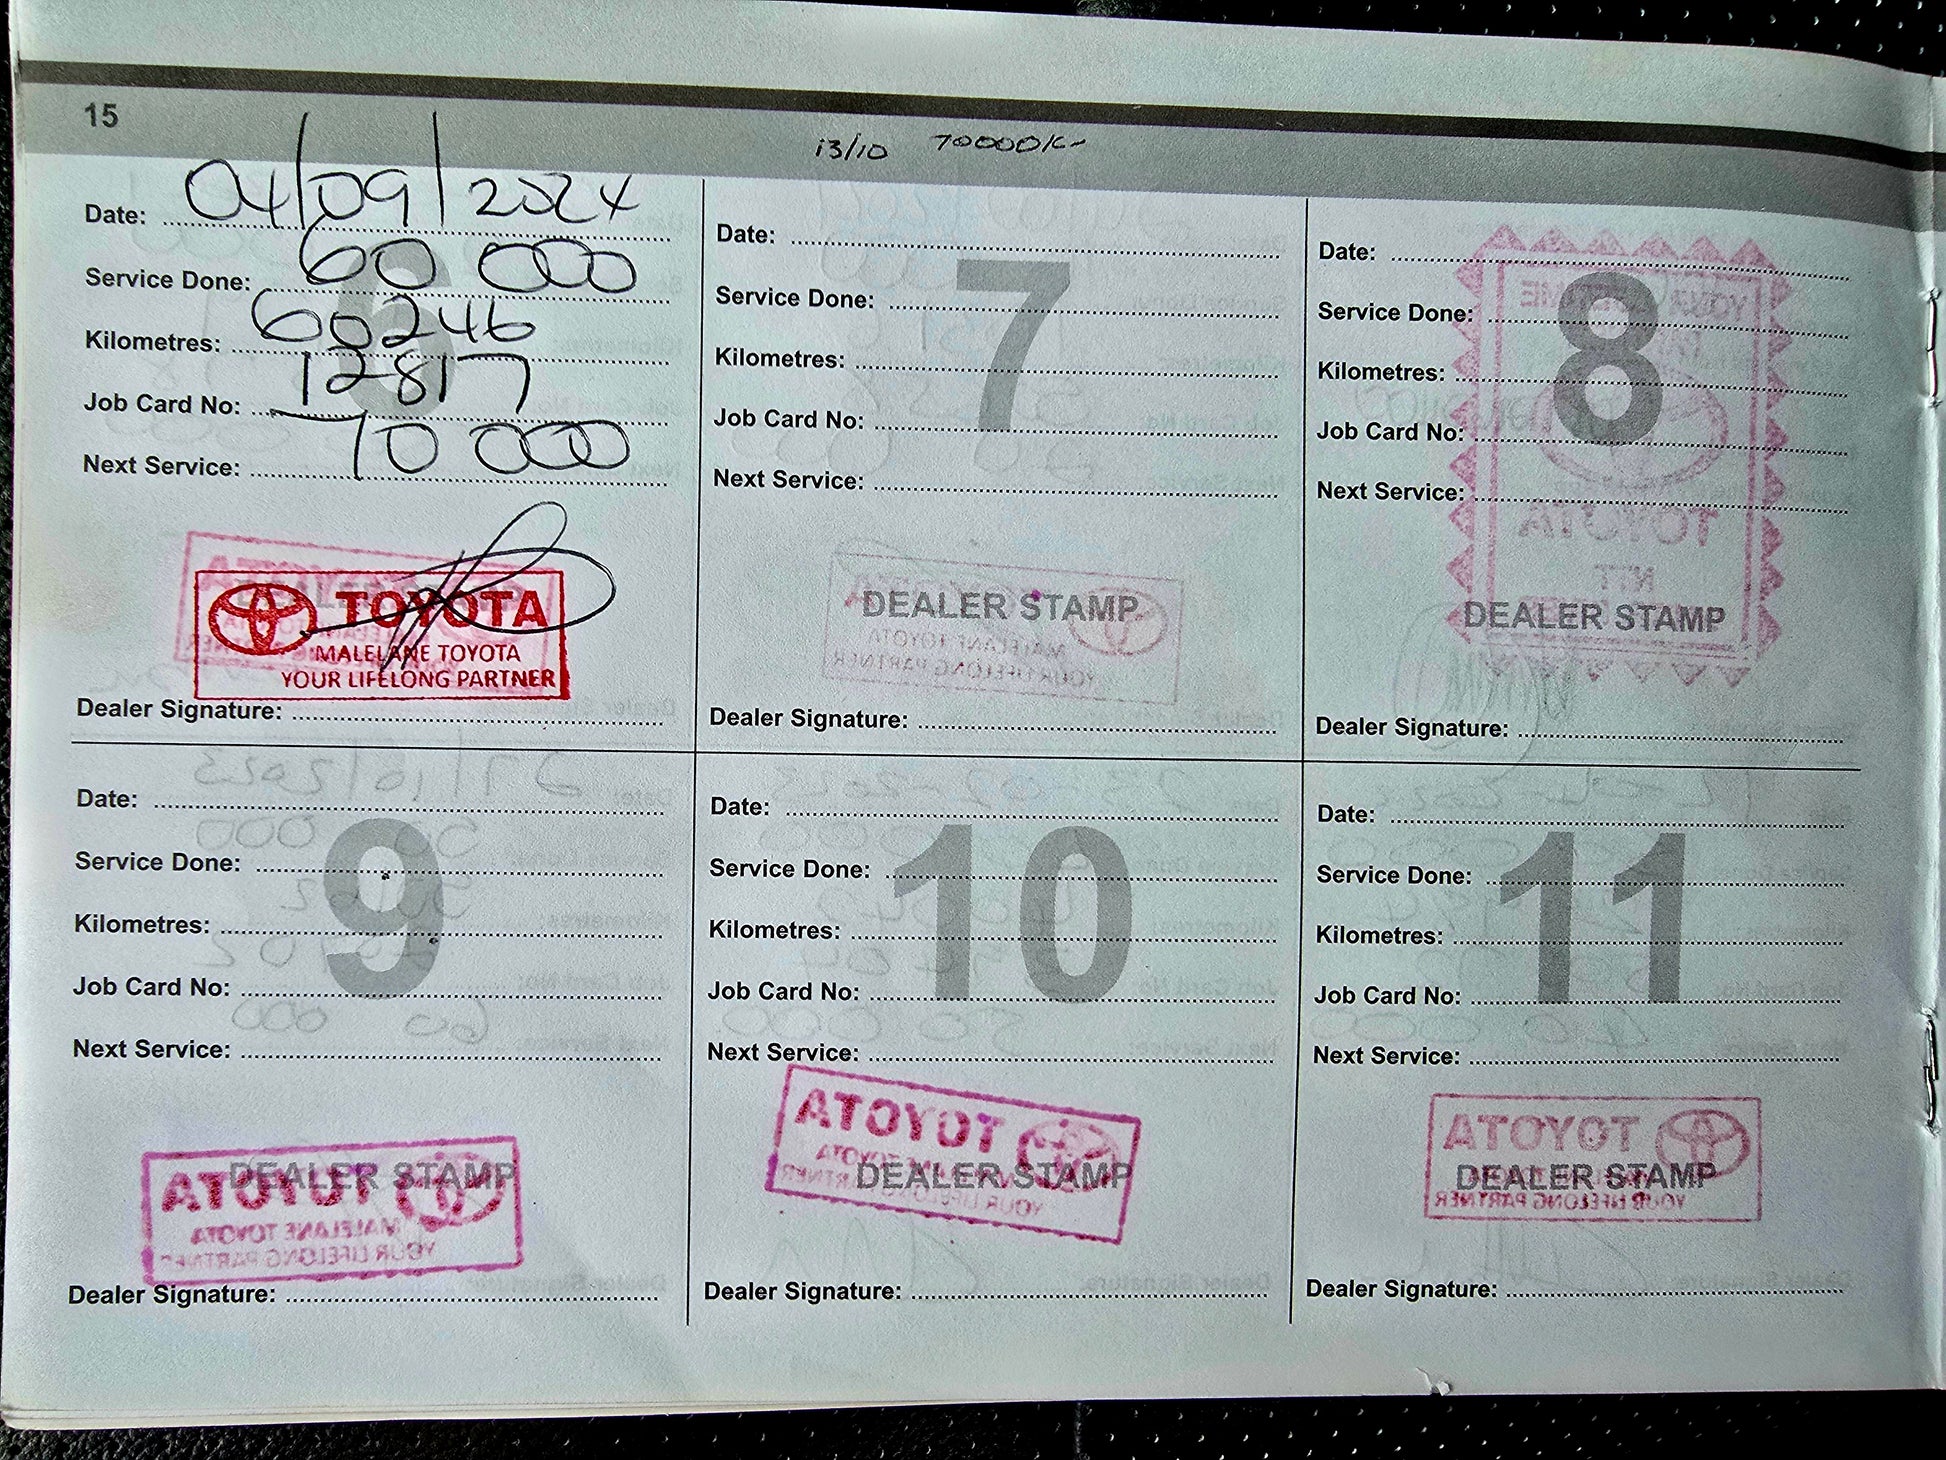 15
13/10 70000K-
Date: 04/09/2024
Service Done: 60 000
Kilometres: 60246
Job Card No: 12817
Next Service: 70 000
6
TOYOTA
MALELANE TOYOTA
YOUR LIFELONG PARTNER
Dealer Signature:
Date:
Service Done:
Kilometres:
Job Card No:
Next Service:
7
DEALER STAMP
Dealer Signature:
Date:
Service Done:
Kilometres:
Job Card No:
Next Service:
8
DEALER STAMP
Dealer Signature:
Date:
Service Done:
Kilometres:
Job Card No:
Next Service:
9
DEALER STAMP
Dealer Signature:
Date:
Service Done:
Kilometres:
Job Card No:
Next Service:
10
DEALER STAMP
Dealer Signature:
Date:
Service Done:
Kilometres:
Job Card No:
Next Service:
11
DEALER STAMP
Dealer Signature: